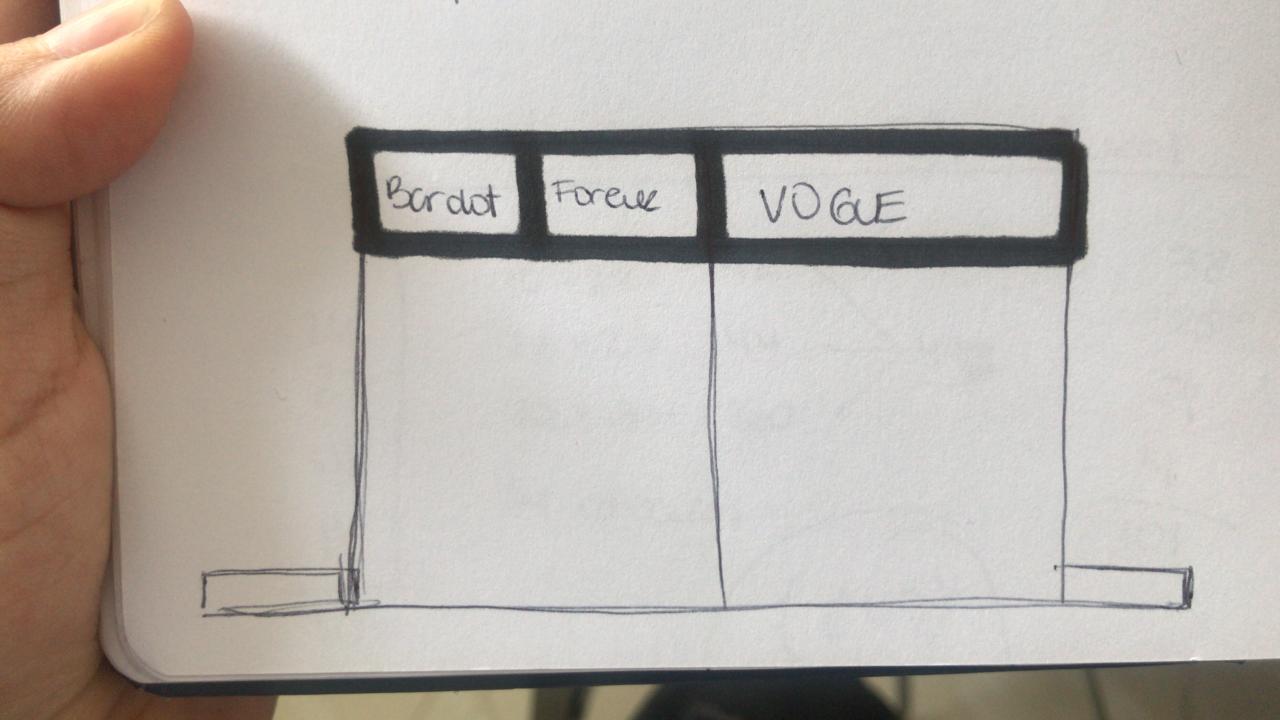 Bardot
Foreve
VOGUE